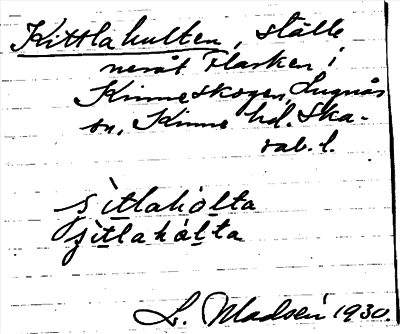 Kittlahulten, ställe
nesåt Flasken i
Kinneskogen, Lugnås
sn, Kinne hd. Ska-
rab. l.
ʂìtlahol̲ta
ʂìtlahòl̲ta
L. Madsén 1930.